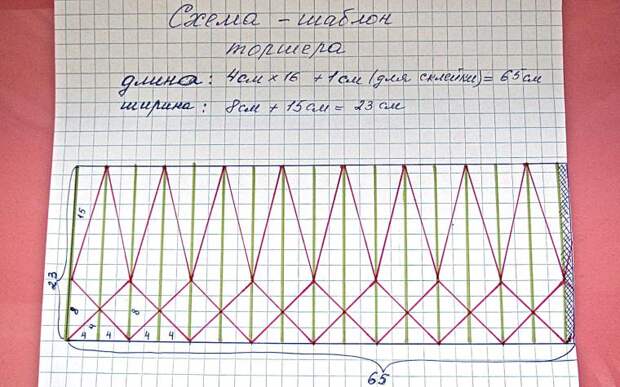 Схема - шаблон
торшера
длина: 4см х 16 + 1см (для склейки) = 65см
ширина: 8см + 15см = 23см
15
23
8
8
4
4
4
4
4
65